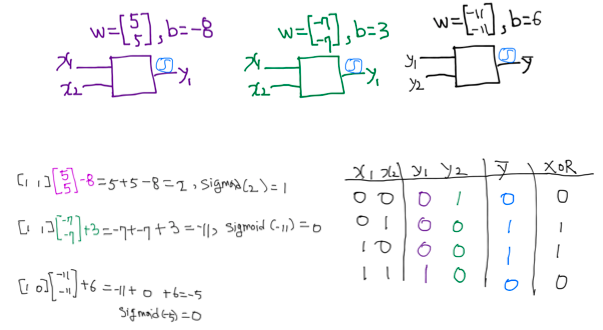 w=[5 5], b=-8
w=[-7 -7], b=3
w=[-11 -11], b=6
x1 x2 σ y1
x1 x2 σ y1
y1 y2 σ y̅
[1 1][5 5]-8=5+5-8=2, sigmoid(2)=1
[1 1][-7 -7]+3=-7+-7+3=-11, sigmoid(-11)=0
[1 0][-11 -11]+6=-11+0+6=-5
sigmoid(-5)=0
x1 x2 y1 y2 y̅ XOR
0 0 0 1 0 0
0 1 0 0 1 1
1 0 0 0 1 1
1 1 1 0 0 0